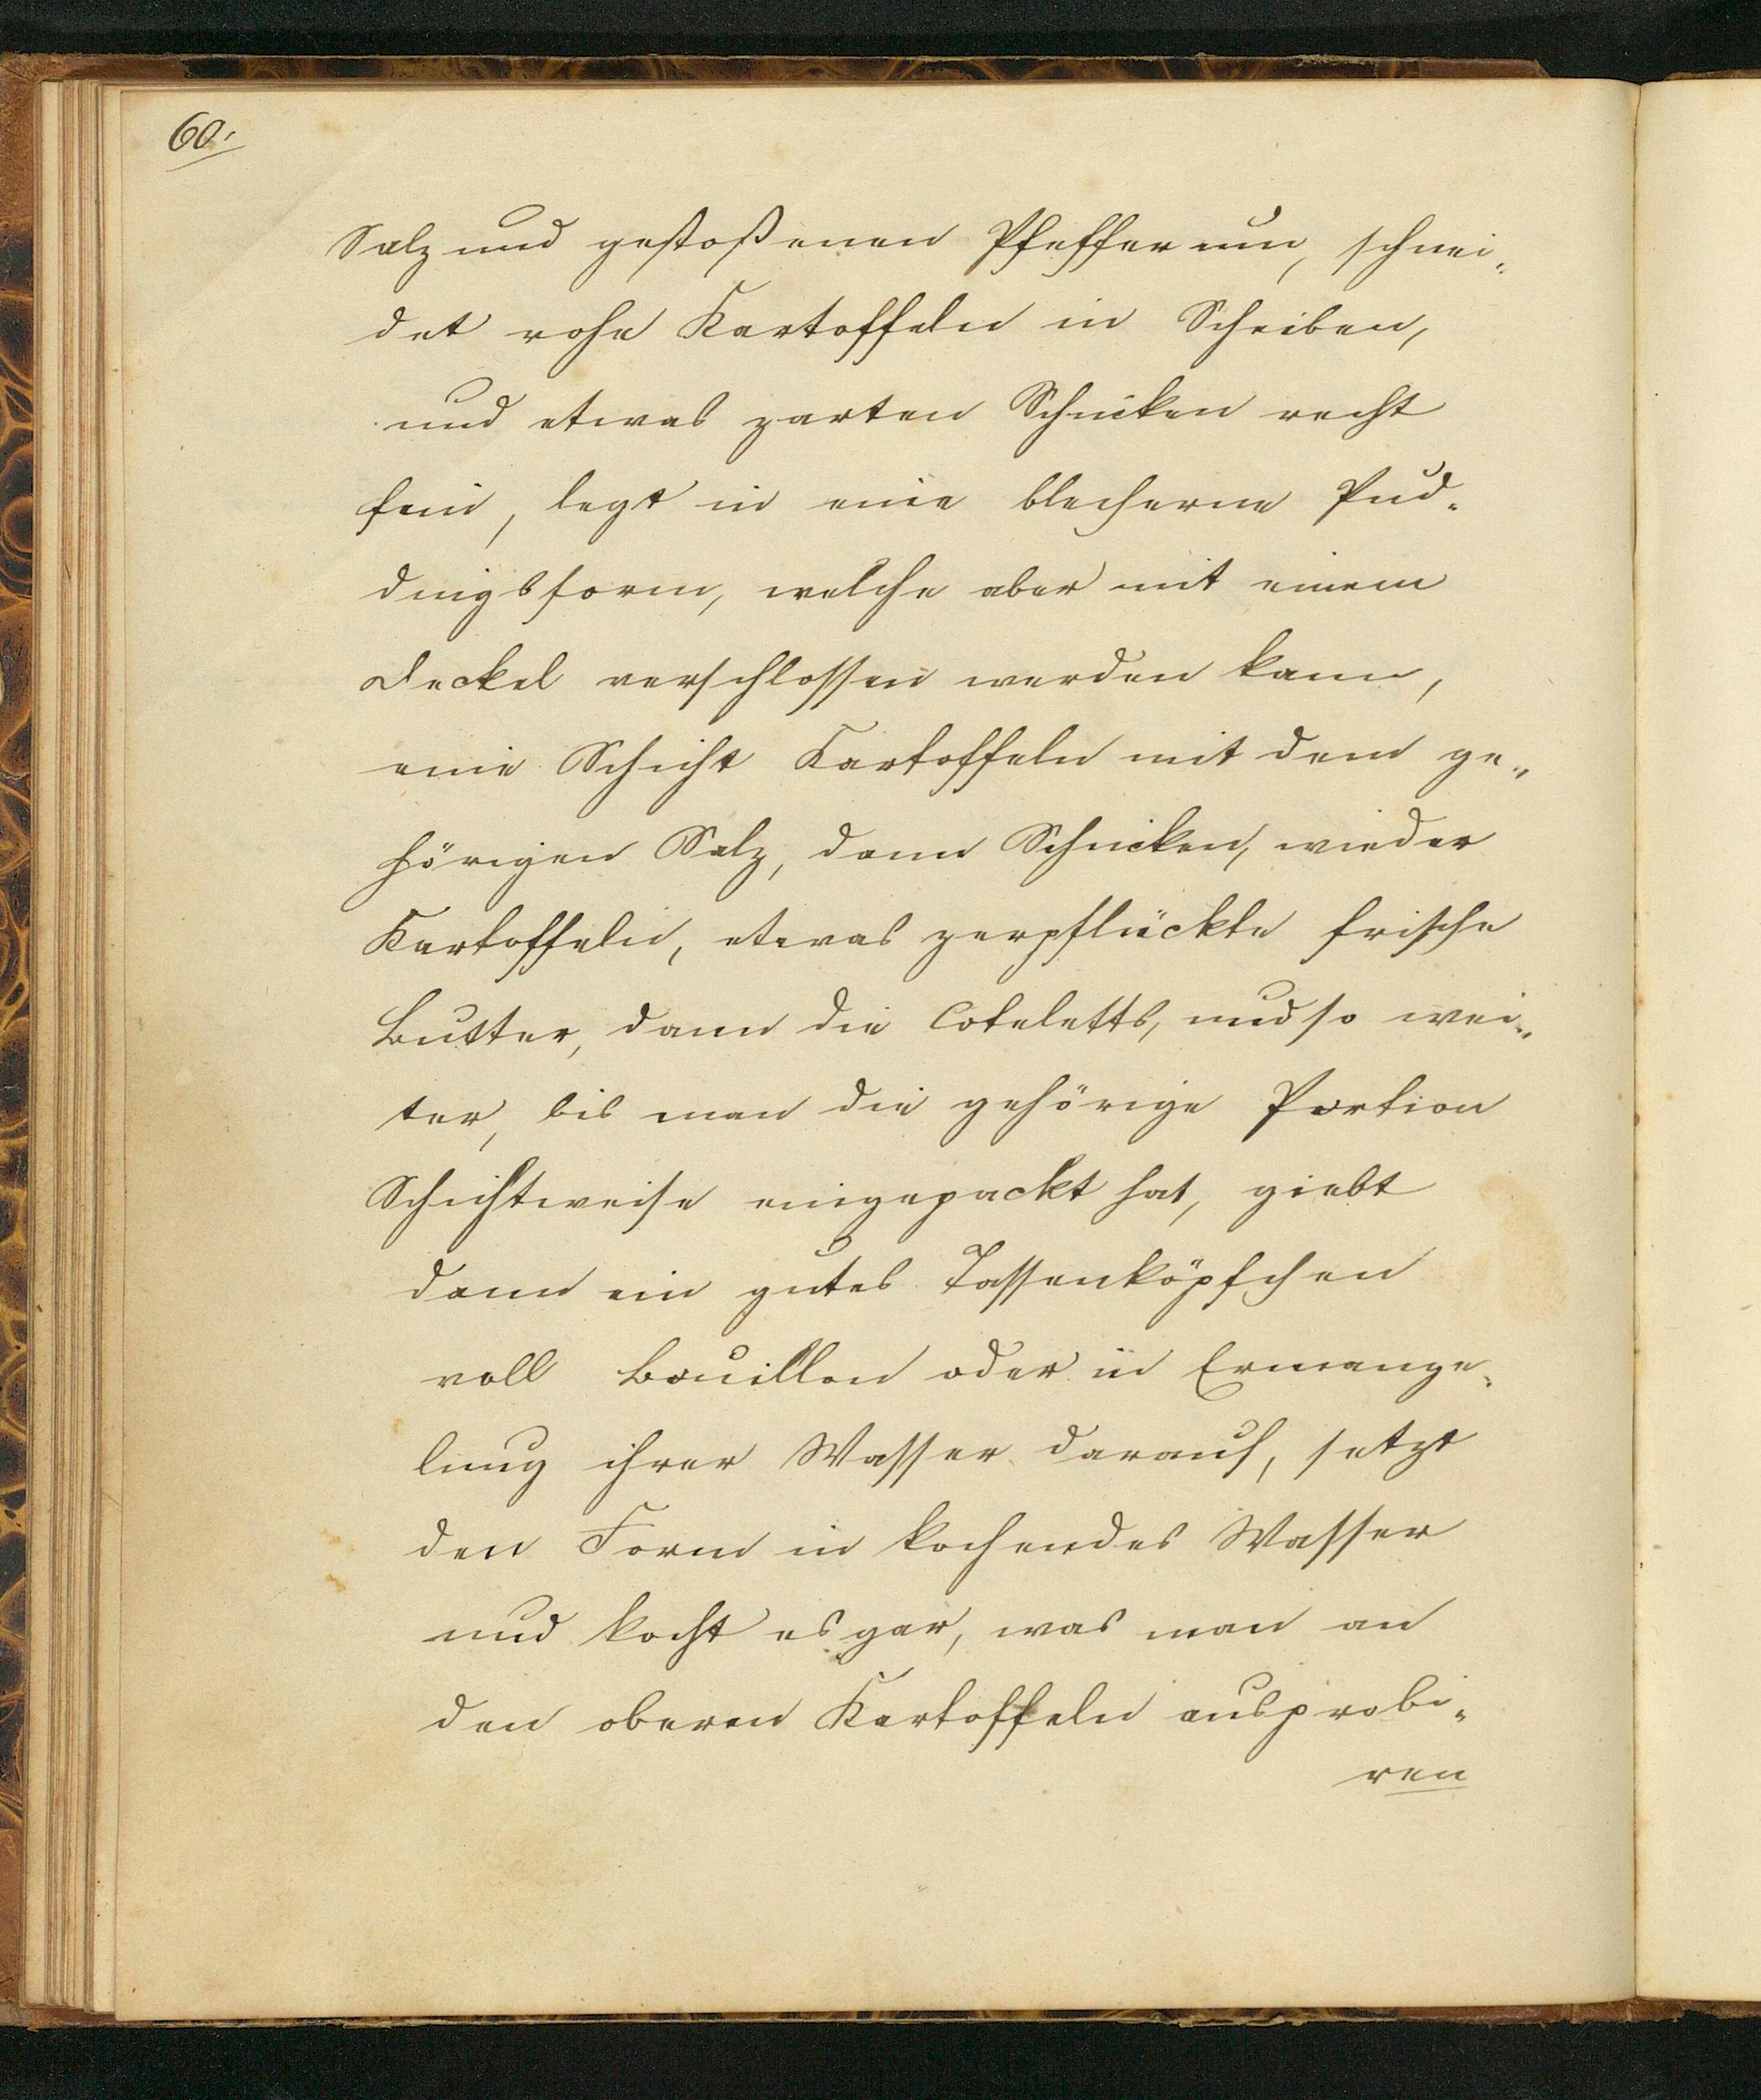 60.
Salz und gestoßenen Pfeffer um, schnei-
det rohe Kartoffeln in Scheiben,
und etwas zarten Schinken recht
fein, legt in eine blecherne Pud-
dingsform, welche aber mit einem
Deckel verschlossen werden kann,
eine Schicht Kartoffeln mit dem ge-
hörigen Salz, dann Schinken, wieder
Kartoffeln, etwas zerpflückte frische
Butter, dann die Coteletts, und so wei-
ter, bis man die gehörige Portion
Schichtweise eingepackt hat, giebt
dann ein gutes Tassenköpfchen
voll Bouillon oder in Ermange-
lung ihrer Wasser darauf, setzt
den Form in kochendes Wasser
und kocht es gar, was man an
den oberen Kartoffeln ausprobi-
ren